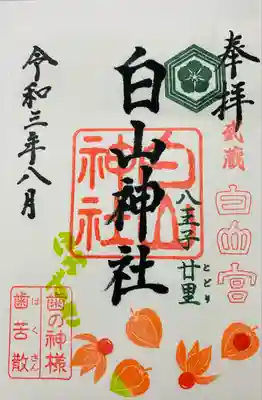 奉拝
武蔵
白山宮
八王子 廿里
とどり
白山神社
白山
神社
令和三年八月
歯の神様
はくさん
歯苦散